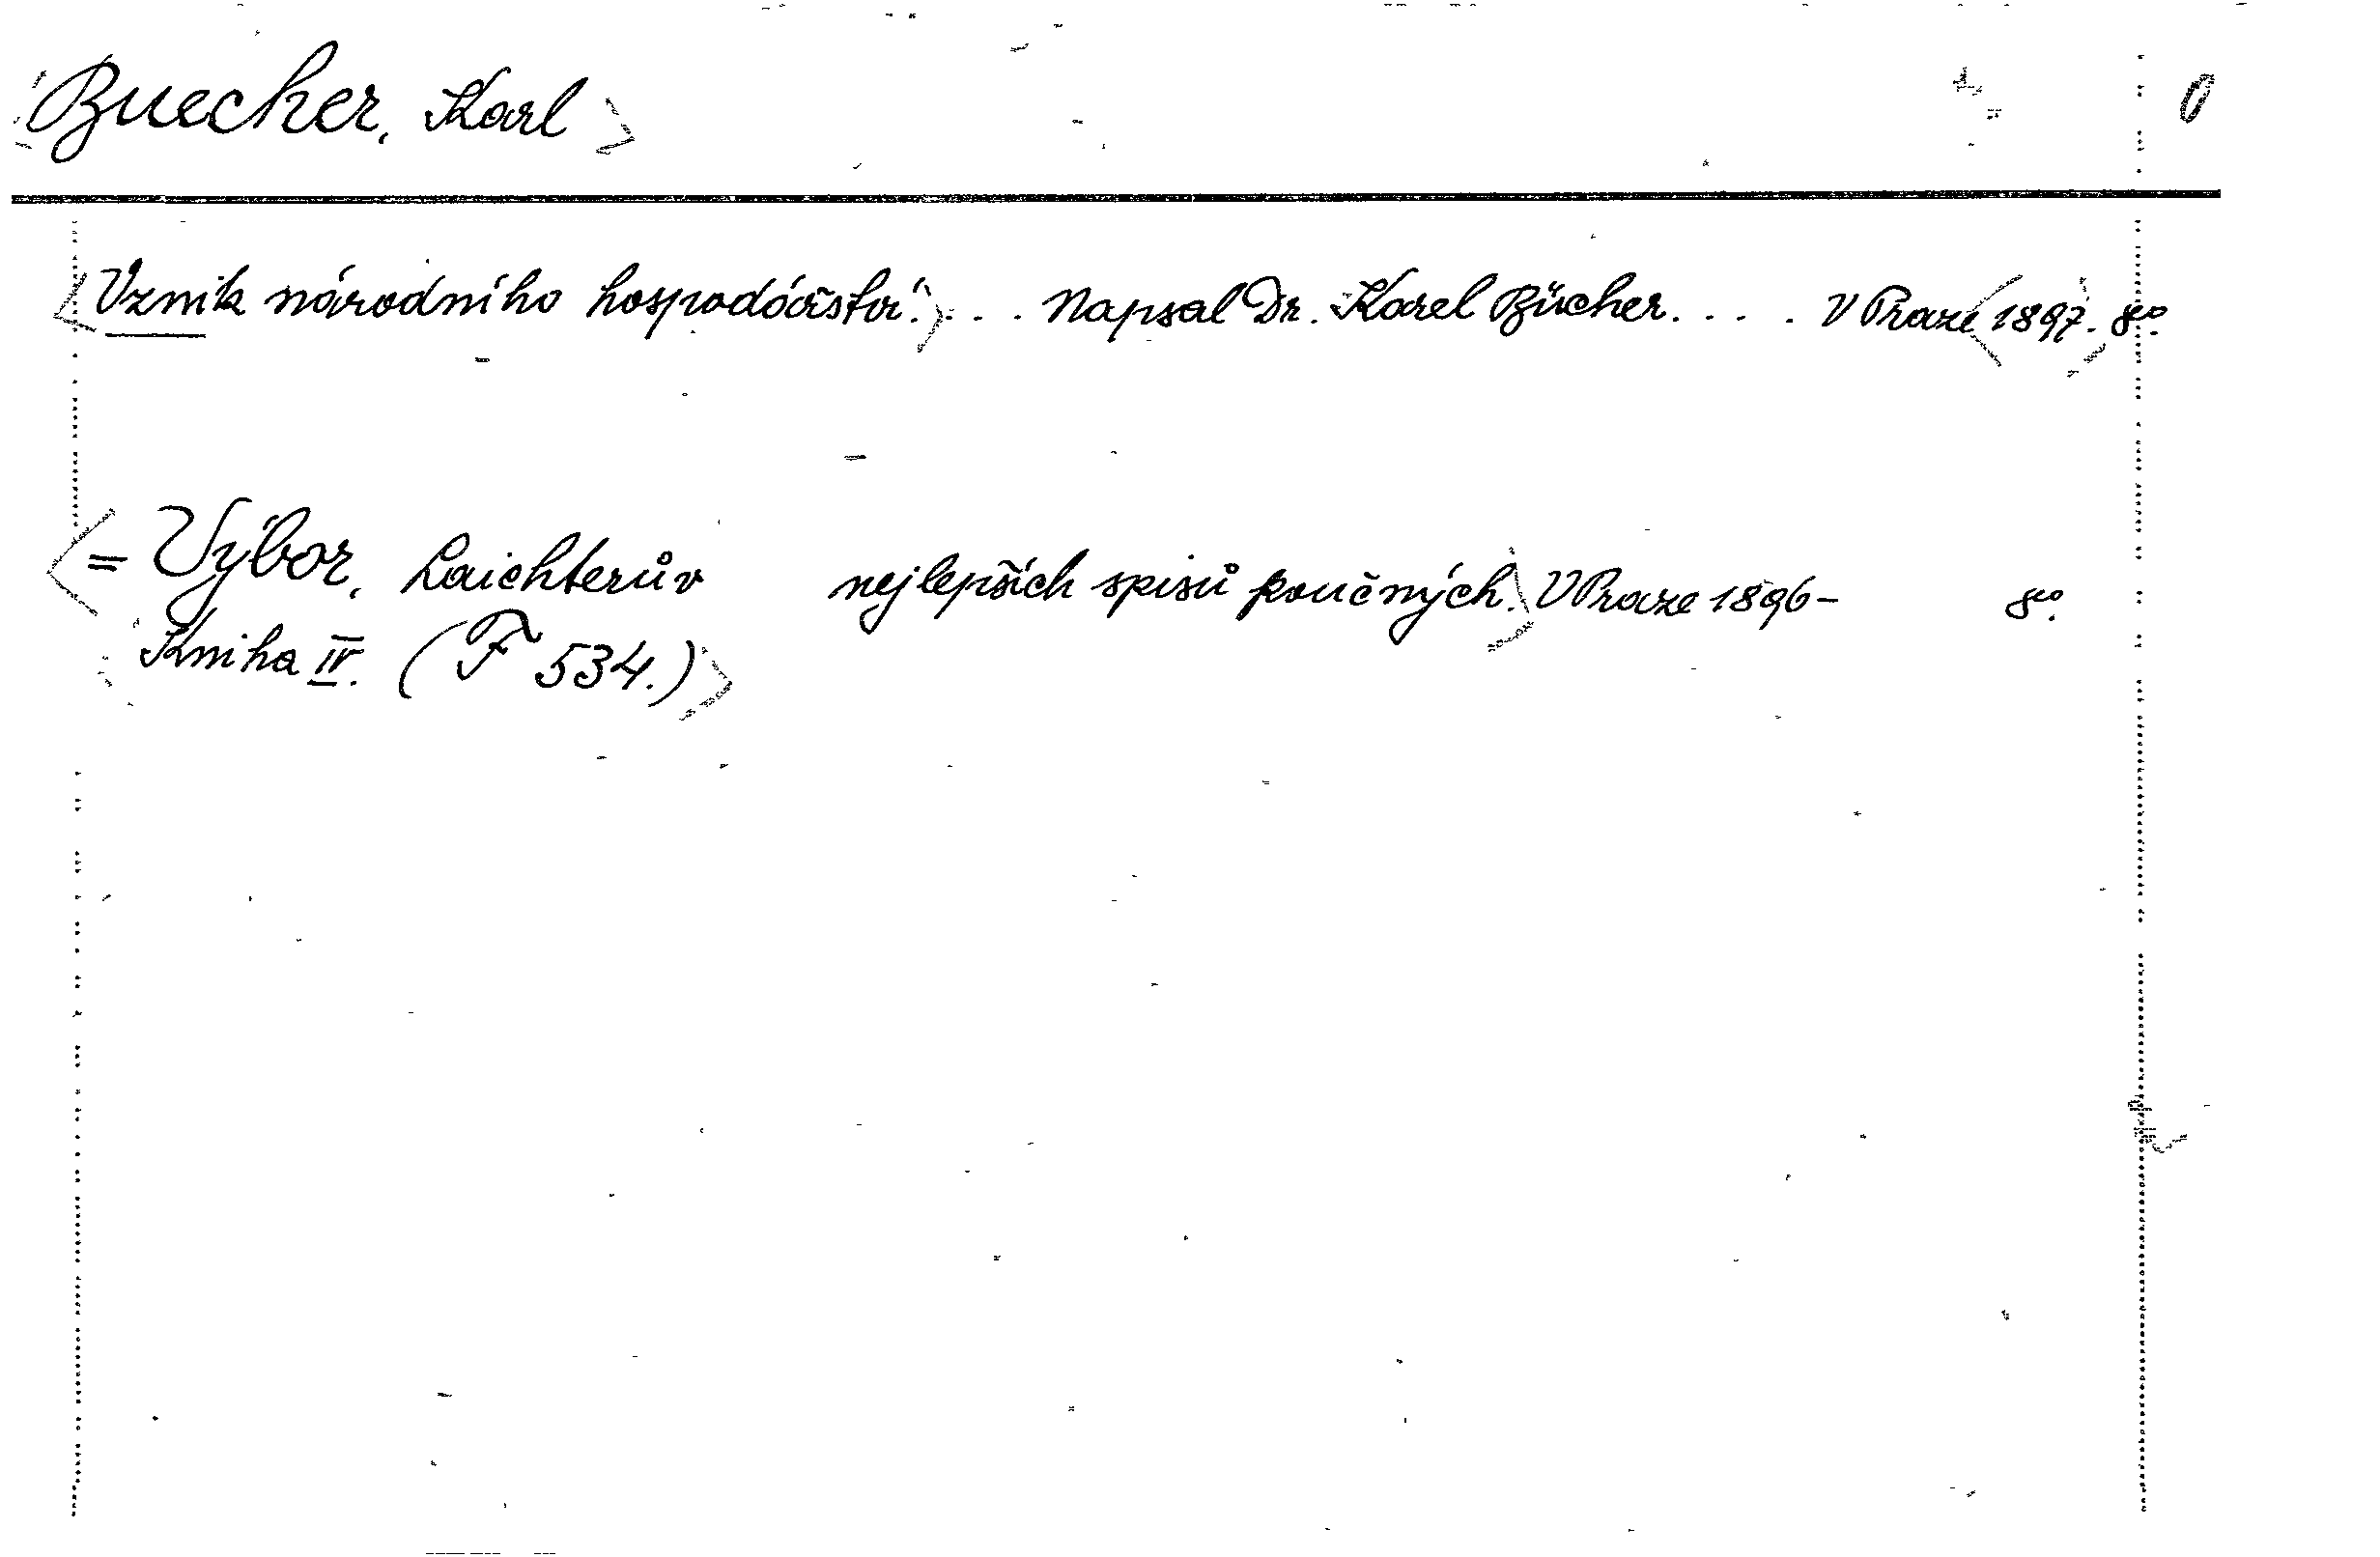 Buecher, Karl 0
Vznik národního hospodářství. . . . Napsal Dr. Karel Bücher. . . . V Praze 1897. 8º.
= Výbor, Laichterův nejlepších spisů poučných. V Praze 1896- 8º.
Kniha IV. (F 534.)